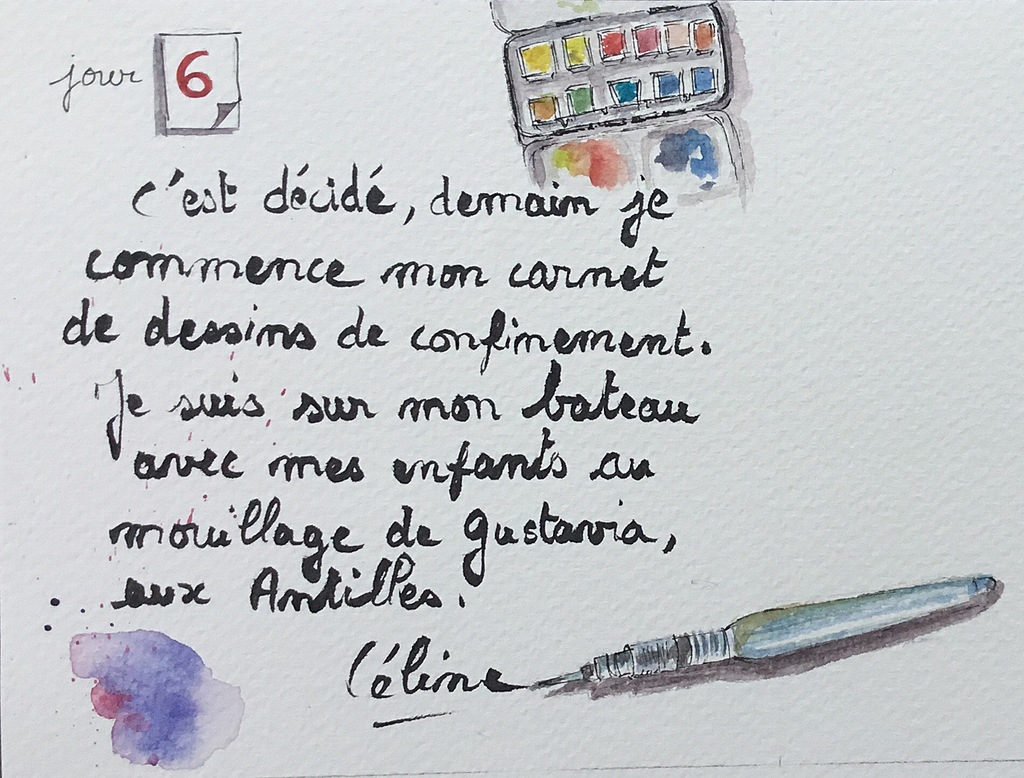 jour 6
c'est décidé, demain je
commence mon carnet
de dessins de confinement.
Je suis sur mon bateau
avec mes enfants au
mouillage de Gustavia,
aux Antilles.
Céline